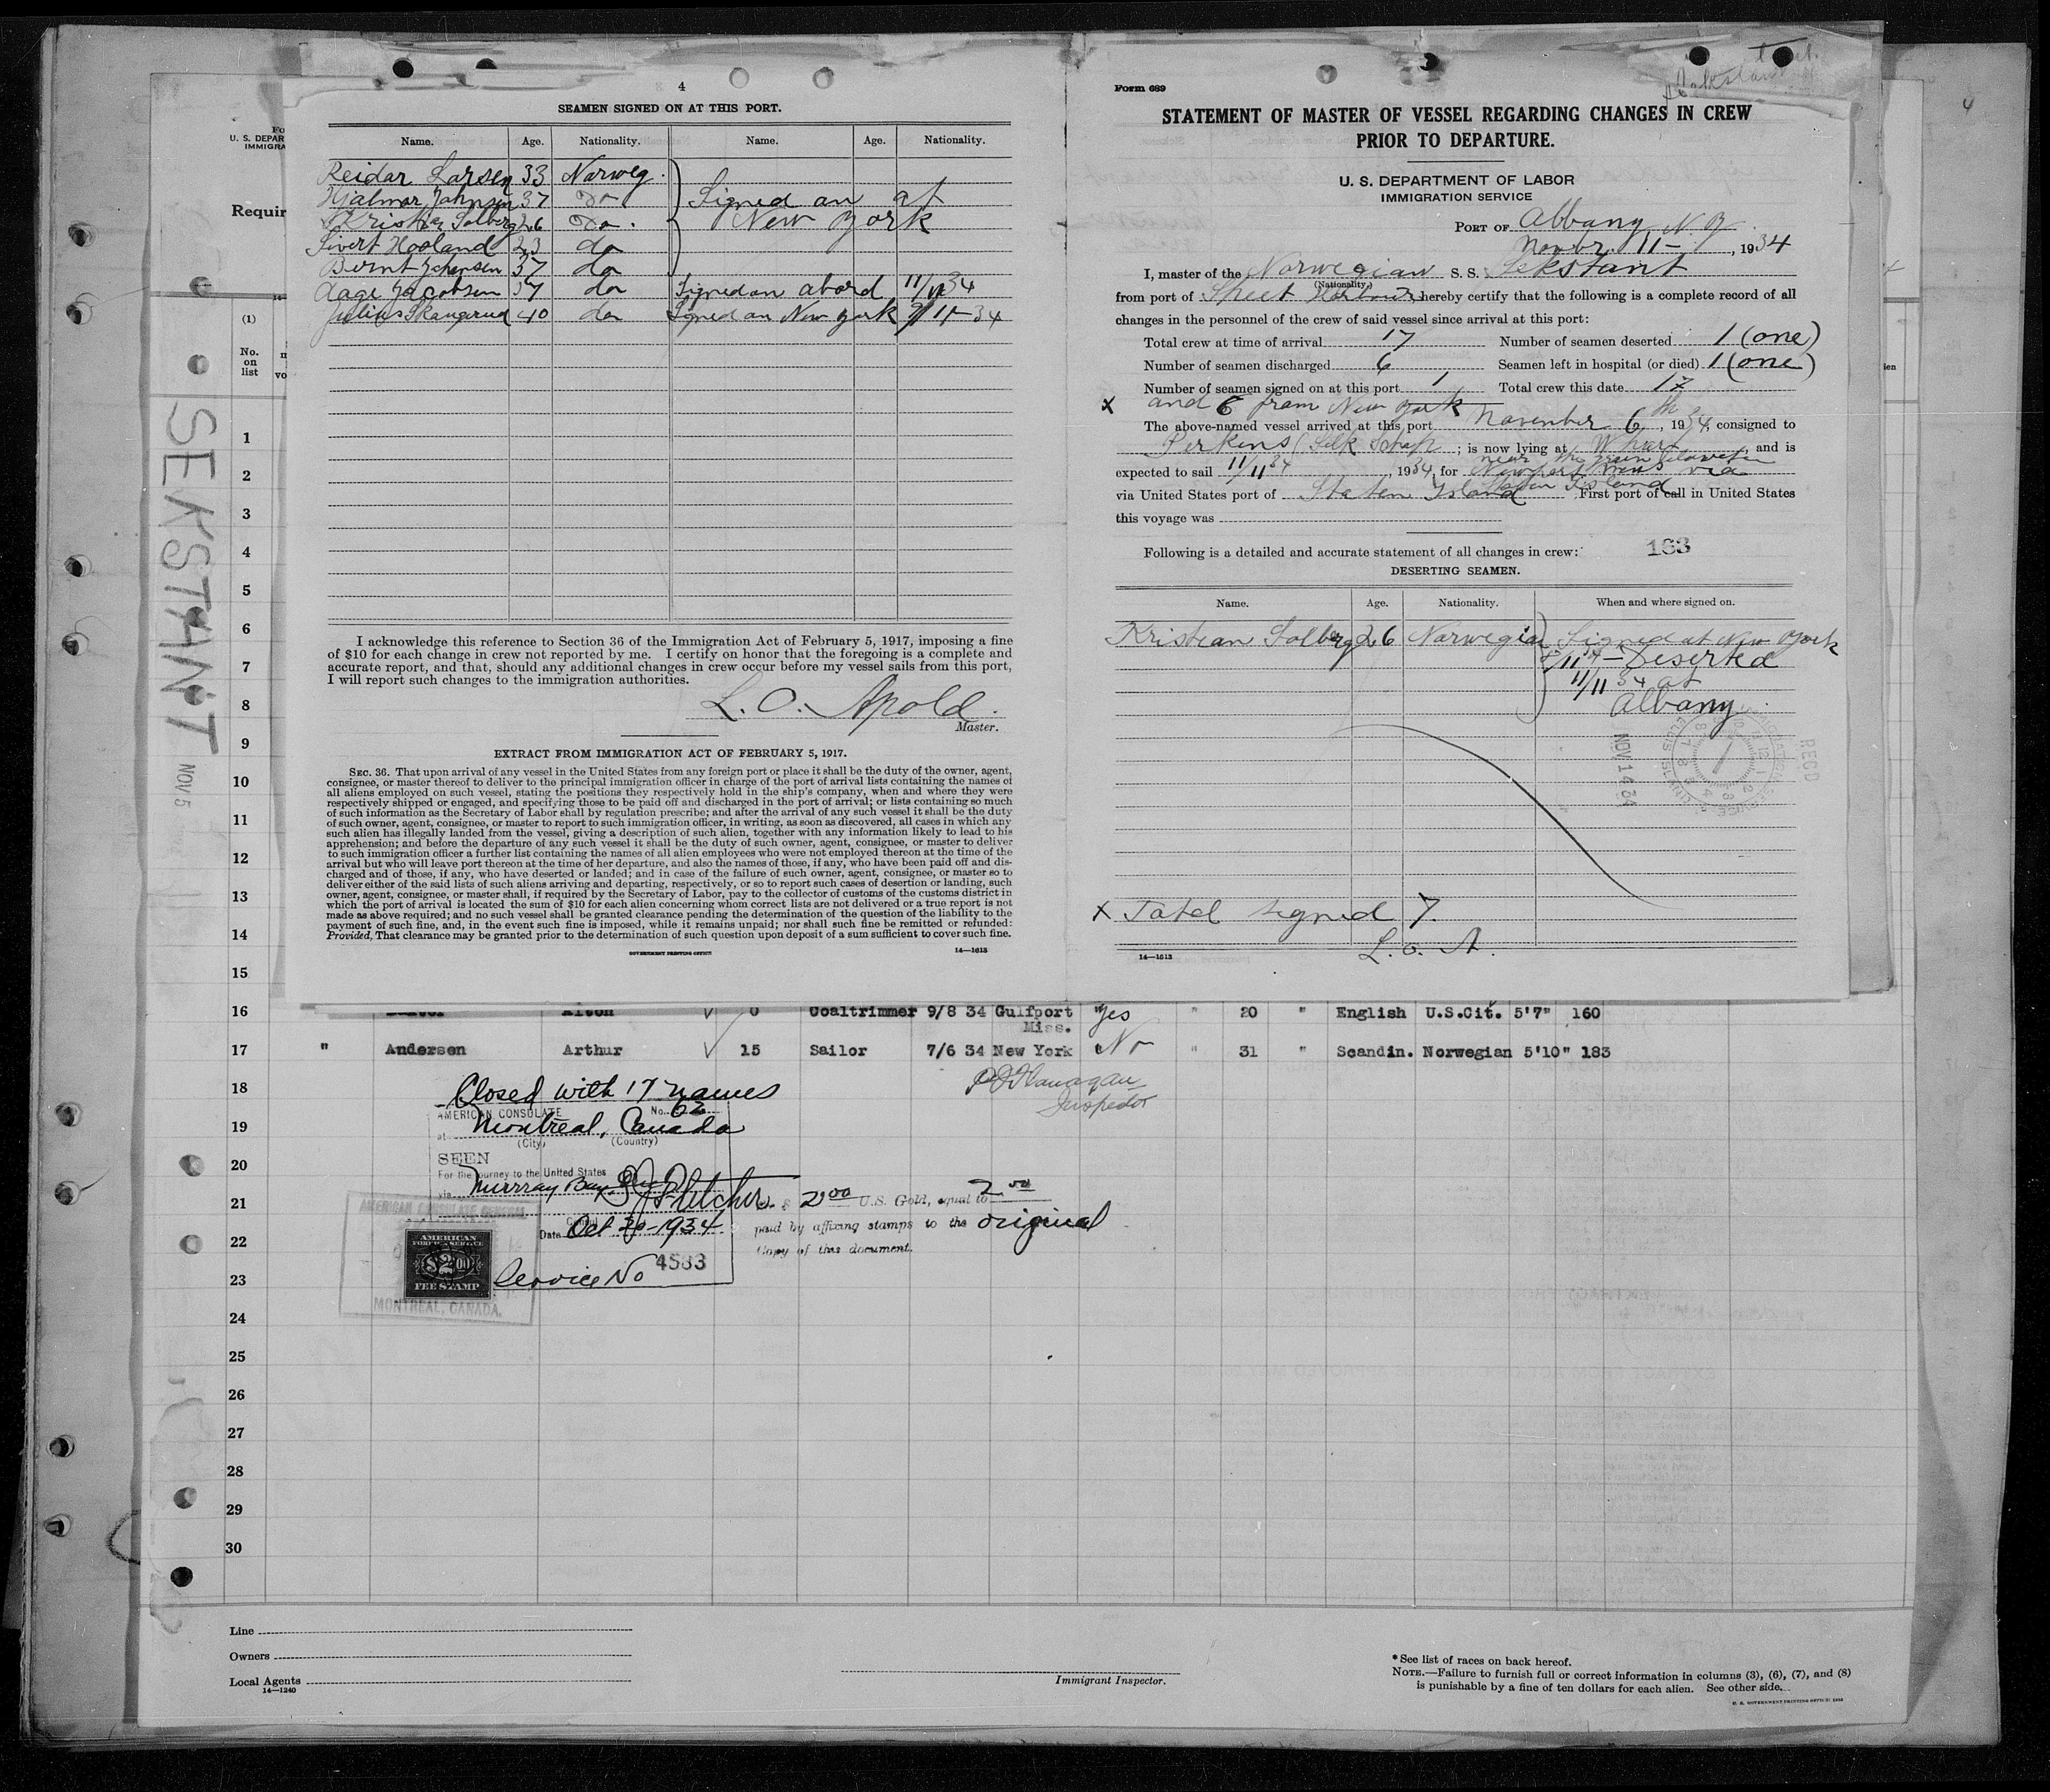 4
SEAMEN SIGNED ON AT THIS PORT.
Name. Age. Nationality. Name. Age. Nationality.
Reidar Larsen 33 Norweg. Signed on at
Hjalmar Johnsen 37 Do New York
Kristian Solberg 26 Do.
Sivert Hooland 23 do
Bernt Johansen 37 do
Aage Jacobsen 37 do Signed on abord 11/11 34
Julius Skangerud 40 do Signed on New York 9/11-34
I acknowledge this reference to Section 36 of the Immigration Act of February 5, 1917, imposing a fine
of $10 for each change in crew not reported by me. I certify on honor that the foregoing is a complete and
accurate report, and that, should any additional changes in crew occur before my vessel sails from this port,
I will report such changes to the immigration authorities.
L. O. Apold.
Master.
EXTRACT FROM IMMIGRATION ACT OF FEBRUARY 5, 1917.
SEC. 36. That upon arrival of any vessel in the United States from any foreign port or place it shall be the duty of the owner, agent,
consignee, or master thereof to deliver to the principal immigration officer in charge of the port of arrival lists containing the names of
all aliens employed on such vessel, stating the positions they respectively hold in the ship's company, when and where they were
respectively shipped or engaged, and specifying those to be paid off and discharged in the port of arrival; or lists containing so much
of such information as the Secretary of Labor shall by regulation prescribe; and after the arrival of any such vessel it shall be the duty
of such owner, agent, consignee, or master to report to such immigration officer, in writing, as soon as discovered, all cases in which any
such alien has illegally landed from the vessel, giving a description of such alien, together with any information likely to lead to his
apprehension; and before the departure of any such vessel it shall be the duty of such owner, agent, consignee, or master to deliver
to such immigration officer a further list containing the names of all alien employees who were not employed thereon at the time of the
arrival but who will leave port thereon at the time of her departure, and also the names of those, if any, who have been paid off and dis-
charged and of those, if any, who have deserted or landed; and in case of the failure of such owner, agent, consignee, or master so to
deliver either of the said lists of such aliens arriving and departing, respectively, or so to report such cases of desertion or landing, such
owner, agent, consignee, or master shall, if required by the Secretary of Labor, pay to the collector of customs of the customs district in
which the port of arrival is located the sum of $10 for each alien concerning whom correct lists are not delivered or a true report is not
made as above required; and no such vessel shall be granted clearance pending the determination of the question of the liability to the
payment of such fine, and, in the event such fine is imposed, while it remains unpaid; nor shall such fine be remitted or refunded:
Provided, That clearance may be granted prior to the determination of such question upon deposit of a sum sufficient to cover such fine.
GOVERNMENT PRINTING OFFICE 14—1613
Form 689
STATEMENT OF MASTER OF VESSEL REGARDING CHANGES IN CREW
PRIOR TO DEPARTURE.
U. S. DEPARTMENT OF LABOR
IMMIGRATION SERVICE
PORT OF Albany N.Y
Novbr. 11-, 1934
I, master of the Norwegian S. S. Sekstant
(Nationality)
from port of Sheet Harbour hereby certify that the following is a complete record of all
changes in the personnel of the crew of said vessel since arrival at this port:
Total crew at time of arrival 17 Number of seamen deserted 1 (one)
Number of seamen discharged 6 Seamen left in hospital (or died) 1 (one)
Number of seamen signed on at this port 1 Total crew this date 17
x and 6 from New York
The above-named vessel arrived at this port November 6th, 1934, consigned to
Perkins ; is now lying at Wharf, and is
near the grain elevator
expected to sail 11/11 34, 1934, for via
Staten Island
via United States port of Staten Island First port of call in United States
this voyage was
Following is a detailed and accurate statement of all changes in crew: 163
DESERTING SEAMEN.
Name. Age. Nationality. When and where signed on.
Kristian Solberg 26 Norwegian Signed at New York
Deserted
11/11 34 at
Albany
REC'D
NOV 14 34
x Total signed 7.
L. O. A.
14—1613
U. S. DEPAR
IMMIGRA
Requir
(1)
No.
on
list
SEKSTANT NOV 5
1
2
3
4
5
6
7
8
9
10
11
12
13
14
15
16 Alton 0 Coaltrimmer 9/8 34 Gulfport Miss. Yes " 20 " English U.S.Cit. 5'7" 160
17 " Andersen Arthur 15 Sailor 7/6 34 New York No " 31 " Scandin. Norwegian 5'10" 183
18 Closed with 17 names Flanagan
Inspector
AMERICAN CONSULATE No. 62
19 at Montreal, Canada
(City) (Country)
20 SEEN
For the journey to the United States
via Murrray Bay
21 Fletcher $ 2.00 U.S. Gold, equal to 2.00
AMERICAN CONSULATE GENERAL
Date Oct 20-1934 paid by affixing stamps to the original
22 Copy of this document.
AMERICAN
FOREIGN SERVICE
$2.00
FEE STAMP
23 Service No 4583
MONTREAL, CANADA.
24
25
26
27
28
29
30
Line
Owners
Local Agents
14—1240
Immigrant Inspector.
* See list of races on back hereof.
NOTE.—Failure to furnish full or correct information in columns (3), (6), (7), and (8)
is punishable by a fine of ten dollars for each alien. See other side.
U. S. GOVERNMENT PRINTING OFFICE